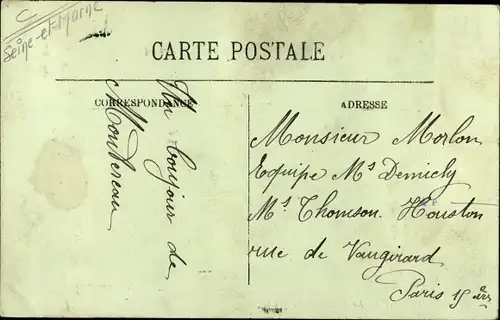 Seine-et-Marne
CARTE POSTALE
CORRESPONDANCE
Un bonjour de
Montereau
ADRESSE
Monsieur Morlon
Equipe Mrs Demichy
Mrs Thomson Houston
rue de Vaugirard
Paris 15 ars